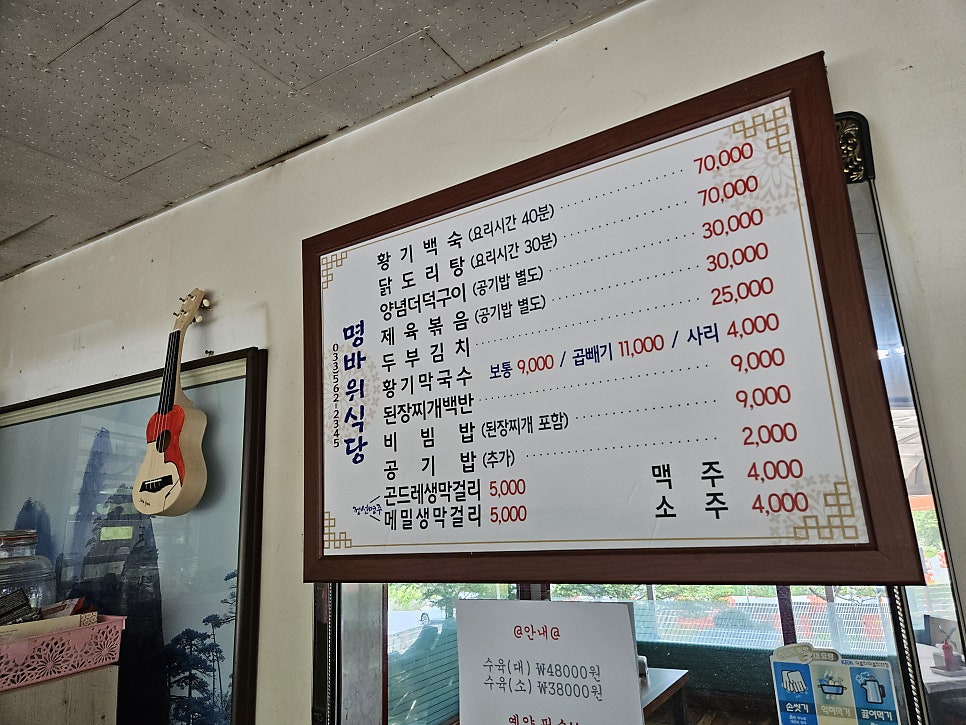 명바위식당
033)562-2345
황기백숙 (요리시간 40분) 70,000
닭도리탕 (요리시간 30분) 70,000
양념더덕구이 (공기밥 별도) 30,000
제육볶음 (공기밥 별도) 30,000
두부김치 25,000
황기막국수 보통 9,000 / 곱빼기 11,000 / 사리 4,000
된장찌개백반 9,000
비빔밥 (된장찌개 포함) 9,000
공기밥 (추가) 2,000
정선명주
곤드레생막걸리 5,000 맥주 4,000
메밀생막걸리 5,000 소주 4,000
@안내@
수육(대) ₩48000원
수육(소) ₩38000원
예약 필수
손씻기 익혀먹기 끓여먹기